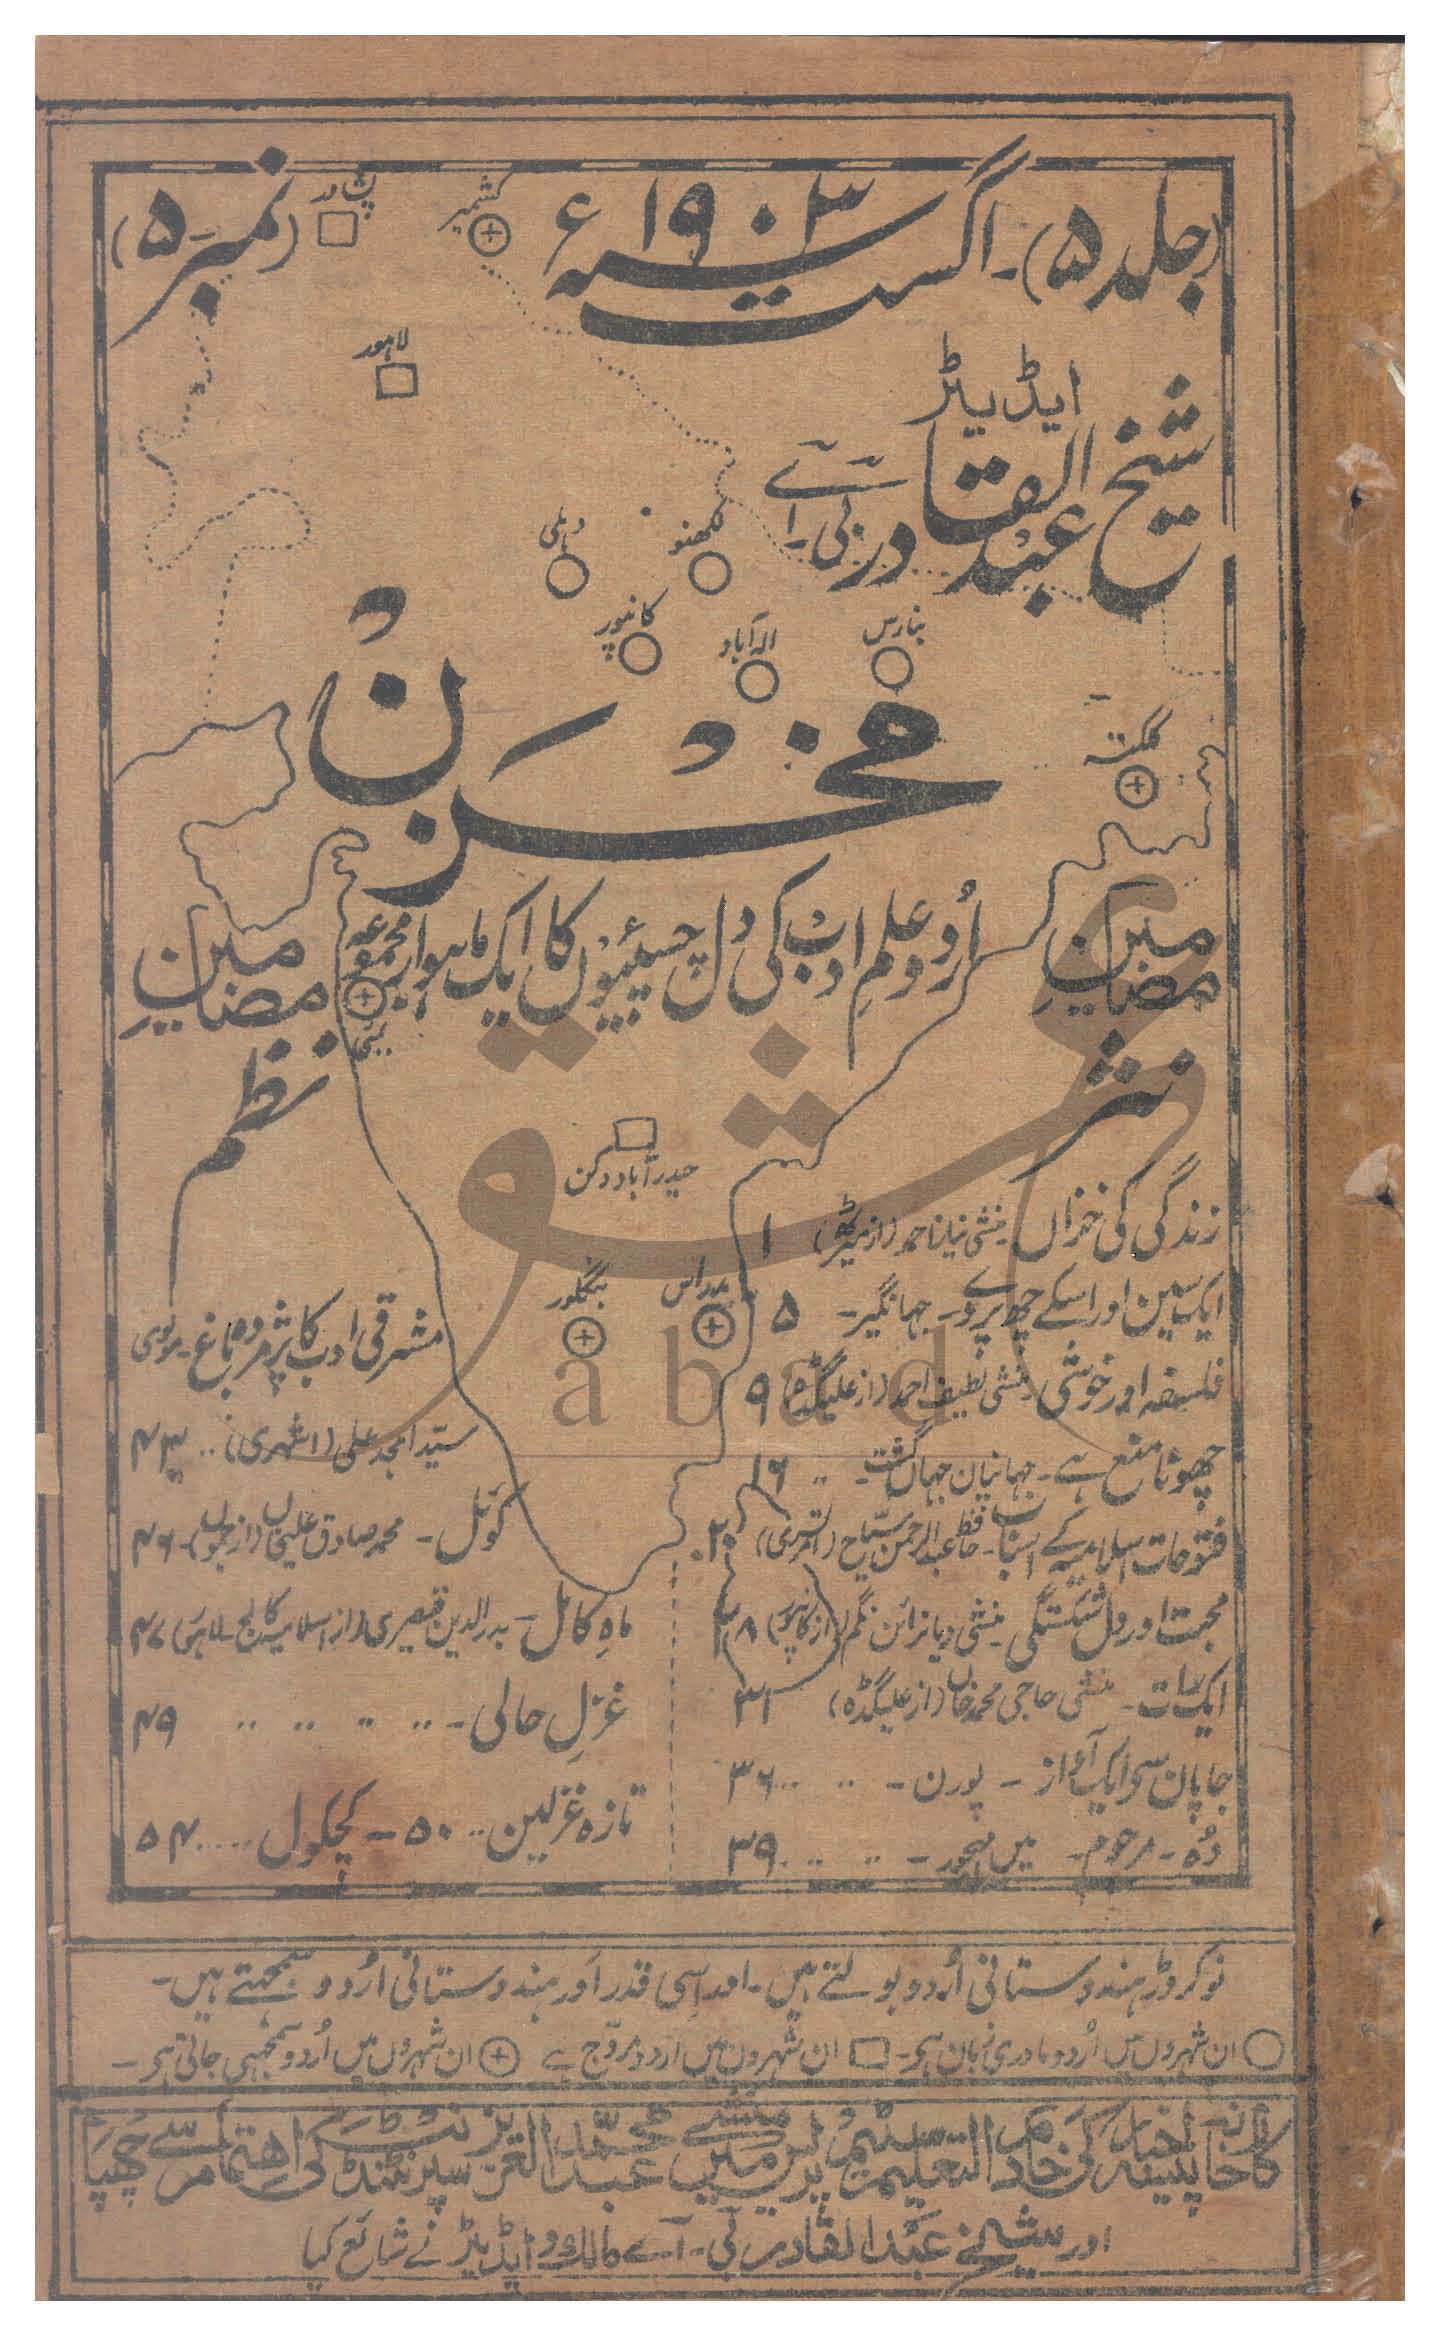 (جلد ۵)۔ اگست سنہ ۱۹۰۳ء (نمبر ۵)
پشاور
کشمیر
لاہور
ایڈیٹر
شیخ عبدالقادر بی۔ اے
دہلی
لکھنو
کانپور
الہ آباد
بنارس
کلکتہ
مخزن
اُردو علم و ادب کی دلچسپیوں کا ایک ماہوار مجموعہ
بمبئی
حیدرآباد دکن
بنگلور
مدراس
مضامینِ نثر
زندگی کی خزاں۔ منشی نیاز احمد (از میرٹھ) ۱
ایک سین اور اسکے چھوٹے پردے۔ جہانگیر۔ ۵
فلسفہ اور خوشی۔ منشی لطیف احمد (از علیگڈہ) ۹
چھونا منع ہے۔ جہانیان جہاں گشت۔ ۱۶
فتوحات اسلامیہ کے اسباب۔ حافظ عبدالرحمن سیاح (امرتسری) ۲۰
محبت اور دل شکستگی۔ منشی دیانرائن نگم (از کانپور) ۲۸
ایک بات۔ منشی حاجی محمد خاں (از علیگڈہ) ۳۱
جاپان سے ایک آواز۔ پورن۔ ۳۶
دُہ۔ مرحوم۔ میں مہجور۔ ۳۹
مضامینِ نظم
مشرقی ادب کا پژمردہ باغ۔ مولوی
سید امجد علی (اشہری) ۴۳
کوئل۔ محمد صادق علیخاں (از جموں)۔ ۴۶
ماہِ کامل۔ بدرالدین قیصری (از اسلامیہ کالج۔ لاہور) ۴۷
غزلِ حالی۔ ۴۹
تازہ غزلیں ۵۰ ـ کچکول ۵۴
نو کروڑ ہندوستانی اُردو بولتے ہیں۔ اور اسی قدر اَور ہندوستانی اُردو سمجھتے ہیں۔
ان شہروں میں اُردو مادری زبان ہے۔ ان شہروں میں اُردو مروّج ہے ان شہروں میں اُردو سمجھی جاتی ہے۔
کارخانہ پیسہ اخبار کی خادم التعلیم سٹیم پریس میں منشی محمد عبدالعزیز سپرنٹنڈنٹ کی اہتمام سے چھپا
اور شیخ عبدالقادر بی۔ اے مالک و ایڈیٹر نے شائع کیا
abad